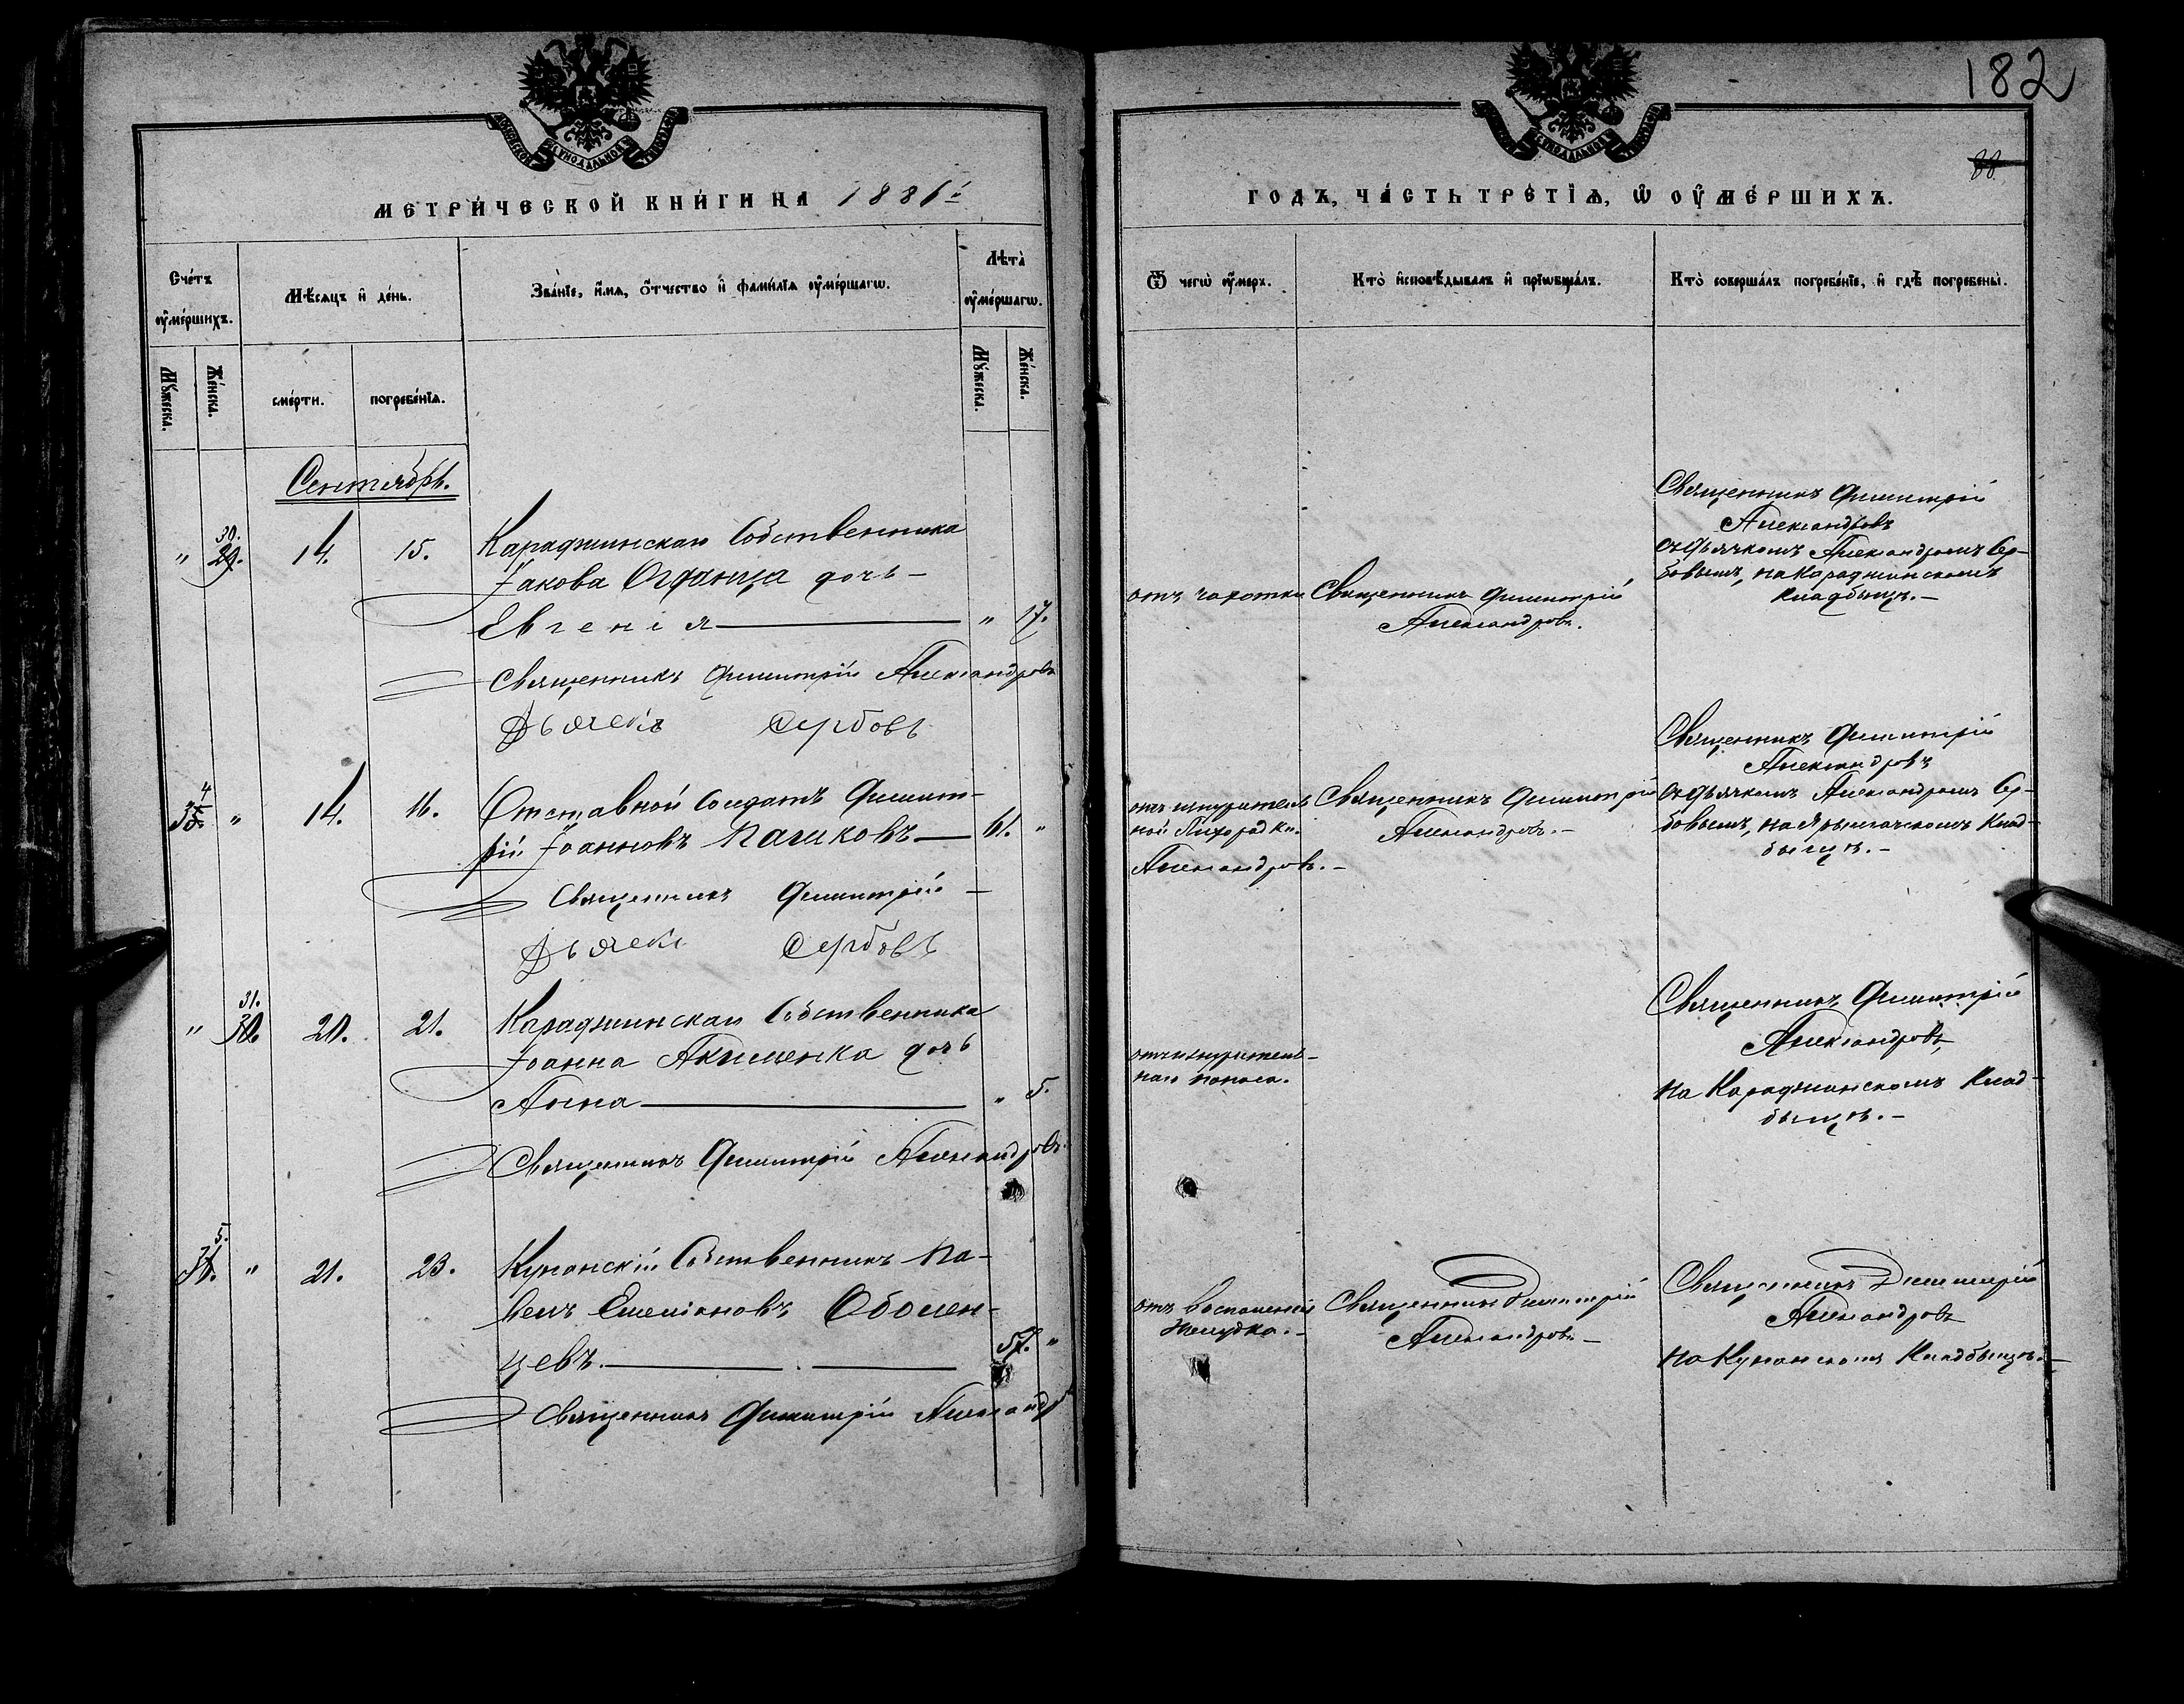 182
88
МЕТРИЧЕСКОЙ КНИГИ НА 1881й
ГОДЪ, ЧАСТЬ ТРЕТІѦ, Ѡ ОУМЕРШИХЪ.
Счетъ оумершихъ.
Мѣсяцъ и день.
Званіе, имя, отчество и фамилія оумершагѡ.
Лѣта оумершагѡ.
Ѿ чегѡ оумеръ.
Кто исповѣдывалъ и пріѡбщалъ.
Кто совершалъ погребеніе, и гдѣ погребены.
Мужеска.
Женска.
смерти.
погребенія.
Мужеска.
Женска.
Сентябрь.
" 30. 29. 14. 15. Караджинскаго Собственника
Іакова Огданца дочь –
Евгенія " 17.
Священникъ Димитрій Александровъ
Дьячекъ Сербовъ
отъ чахотки
Священникъ Димитрій
Александровъ.
Священникъ Димитрій
Александровъ
съ дьячкомъ Александромъ Сер-
бовымъ, на Караджинскомъ
кладбищѣ. –
4 35. " 14. 16. Отставной Солдатъ Димит-
рій Іоанновъ Пачиковъ 61. "
Священникъ Димитрій –
Александровъ. –
Дьячекъ Сербовъ
отъ изнуритель
ной Лихорадки.
Священникъ Димитрій
Александровъ. –
Священникъ Димитрій
Александровъ
съ дьячкомъ Александромъ Сер-
бовымъ, на Ярылгачскомъ Клад-
бищѣ. –
" 31. 30. 20. 21. Караджинскаго Собственника
Іоанна Акименка дочь
Анна " 5.
Священникъ Димитрій Александровъ.
отъ изнуритель-
наго поноса.
Священникъ Димитрій
Александровъ,
на Караджинскомъ Клад-
бищѣ. –
5. 36. " 21. 23. Кунанскій Собственникъ Па-
велъ Емеліановъ Оболен-
цевъ. 57. "
Священникъ Димитрій Александр
отъ воспаленія
желудка. –
Священникъ Димитрій
Александровъ –
Священникъ Димитрій
Александровъ
на Кунанскомъ Кладбищѣ. –